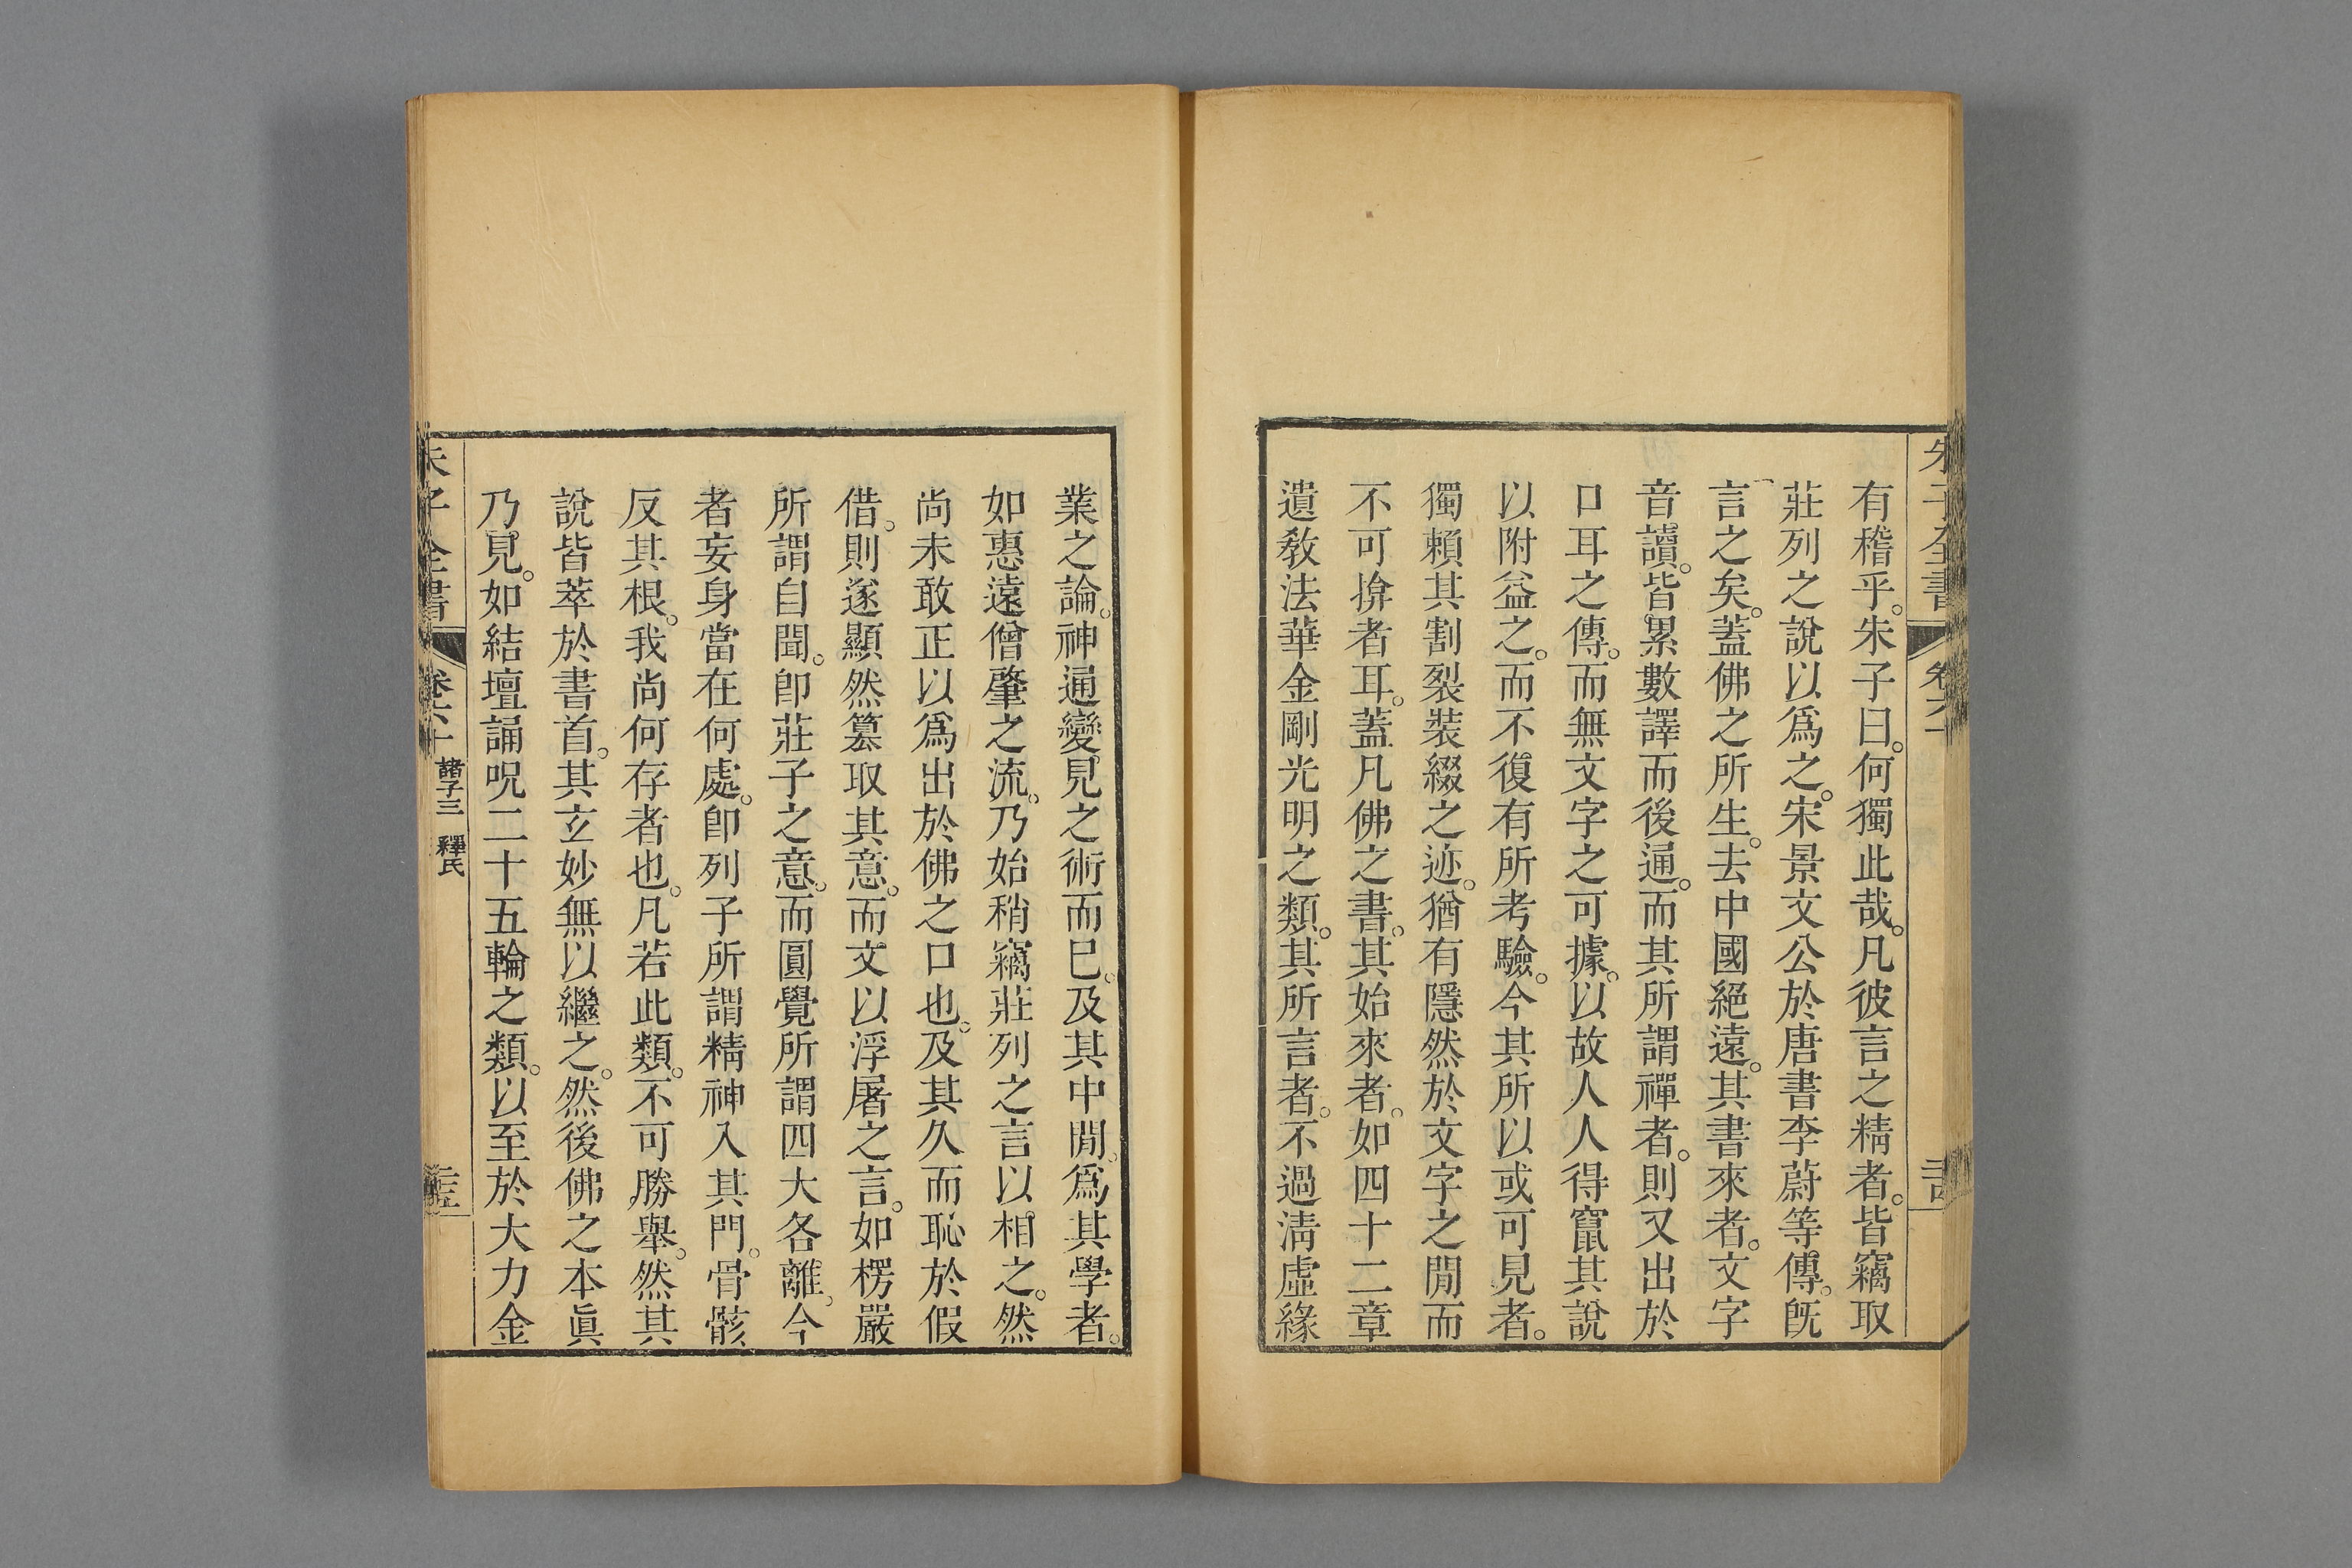 朱子全書
卷六十
有稽乎。朱子曰。何獨此哉。凡彼言之精者。皆竊取
莊列之說以爲之。宋景文公於唐書李蔚等傳。旣
言之矣。蓋佛之所生。去中國絕遠。其書來者。文字
音讀。皆累數譯而後通。而其所謂禪者。則又出於
口耳之傳。而無文字之可據。以故人人得竄其說
以附益之。而不復有所考驗。今其所以或可見者。
獨賴其割裂裝綴之迹。猶有隱然於文字之閒而
不可揜者耳。蓋凡佛之書。其始來者。如四十二章
遺敎法華金剛光明之類。其所言者。不過淸虛緣
業之論。神通變見之術而已。及其中閒。爲其學者。
如惠遠僧肇之流。乃始稍竊莊列之言。以相之。然
尚未敢正以爲出於佛之口也。及其久而恥於假
借。則遂顯然篡取其意。而文以浮屠之言。如楞嚴
所謂自聞。卽莊子之意。而圓覺所謂四大各離。今
者妄身當在何處。卽列子所謂精神入其門。骨骸
反其根。我尚何存者也。凡若此類。不可勝舉。然其
說皆萃於書首。其玄妙無以繼之。然後佛之本眞
乃見。如結壇誦呪二十五輪之類。以至於大力金
朱子全書
卷六十
諸子三 釋氏
三五